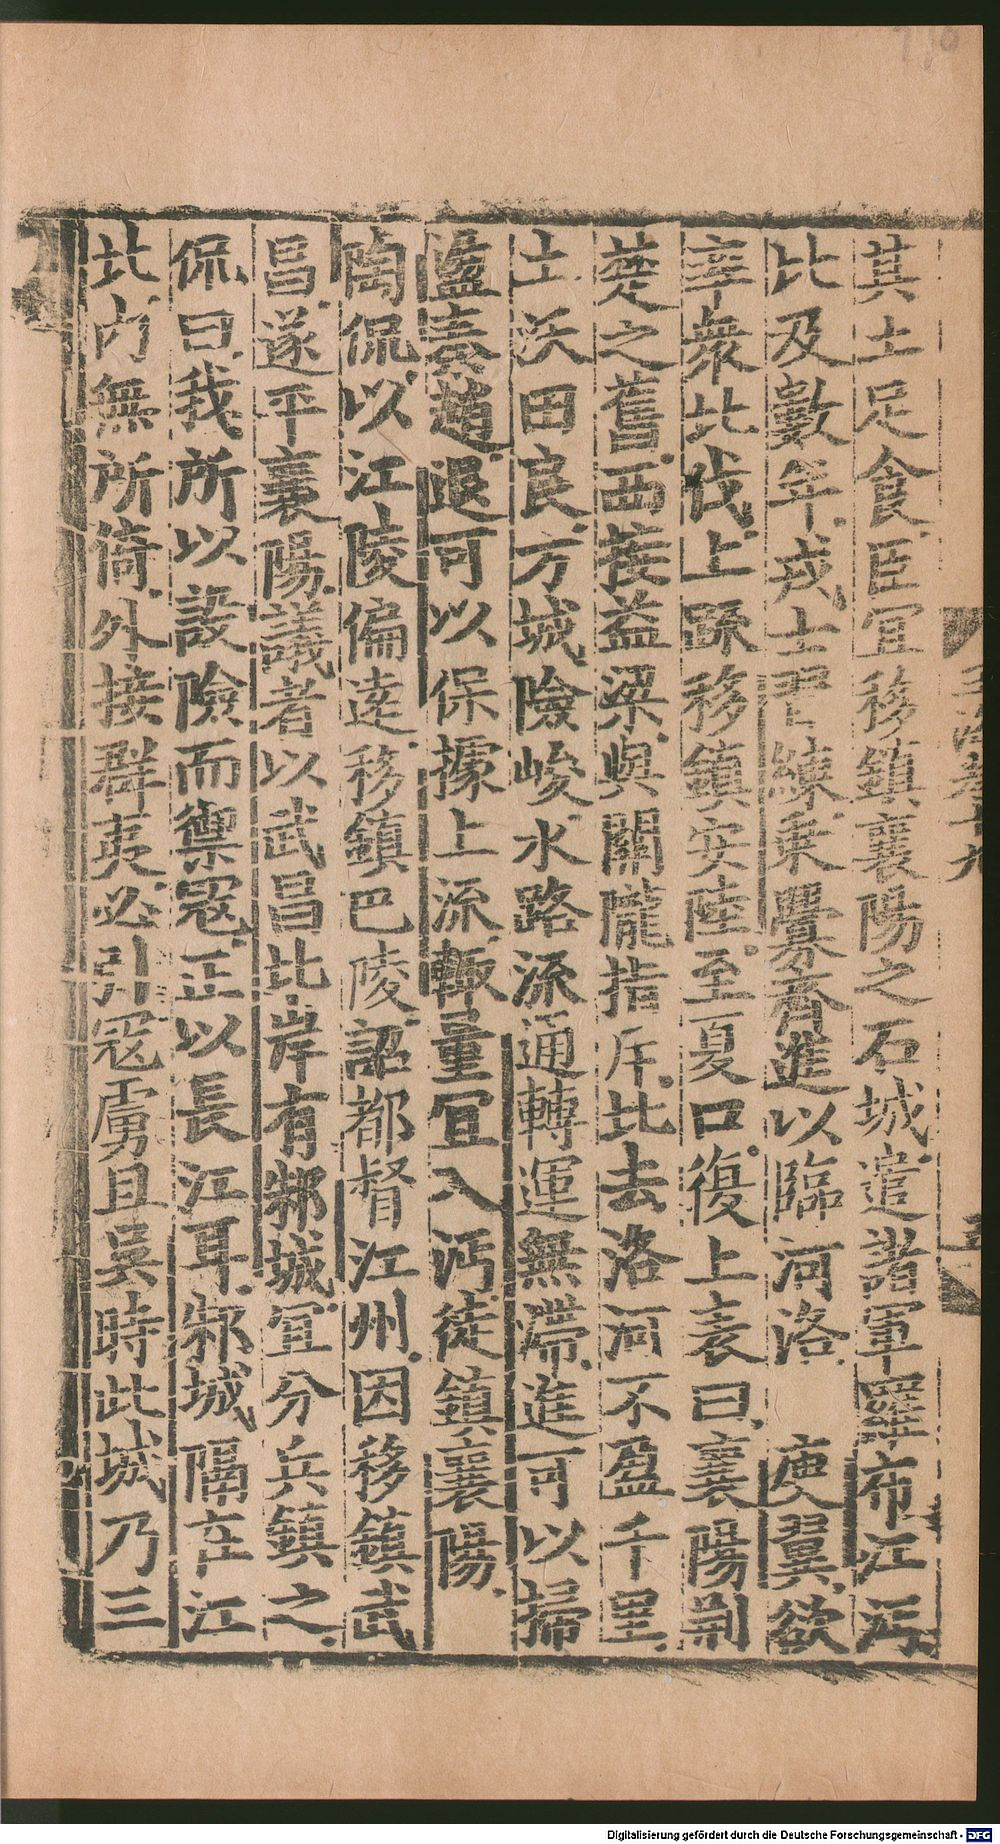 其土足食臣宜移鎮襄陽之石城遣諸軍羅布江沔
比及數年戎士習練乘釁齊進以臨河洛 庾翼欲
率衆北伐上疏移鎮安陸至夏口復上表曰襄陽荆
楚之舊西接益梁與關隴指斥北去洛河不盈千里
土沃田良方城險峻水路流通轉運無滯進可以掃
盪秦趙退可以保據上流輙量宜入沔徙鎮襄陽
陶侃以江陵偏逺移鎮巴陵詔都督江州因移鎮武
昌遂平襄陽議者以武昌北岸有邾城宜分兵鎮之
侃曰我所以設險而禦寇正以長江耳邾城隔在江
北内無所倚外接群夷必引寇虜且吳時此城乃三
Digitalisierung gefördert durch die Deutsche Forschungsgemeinschaft - DFG